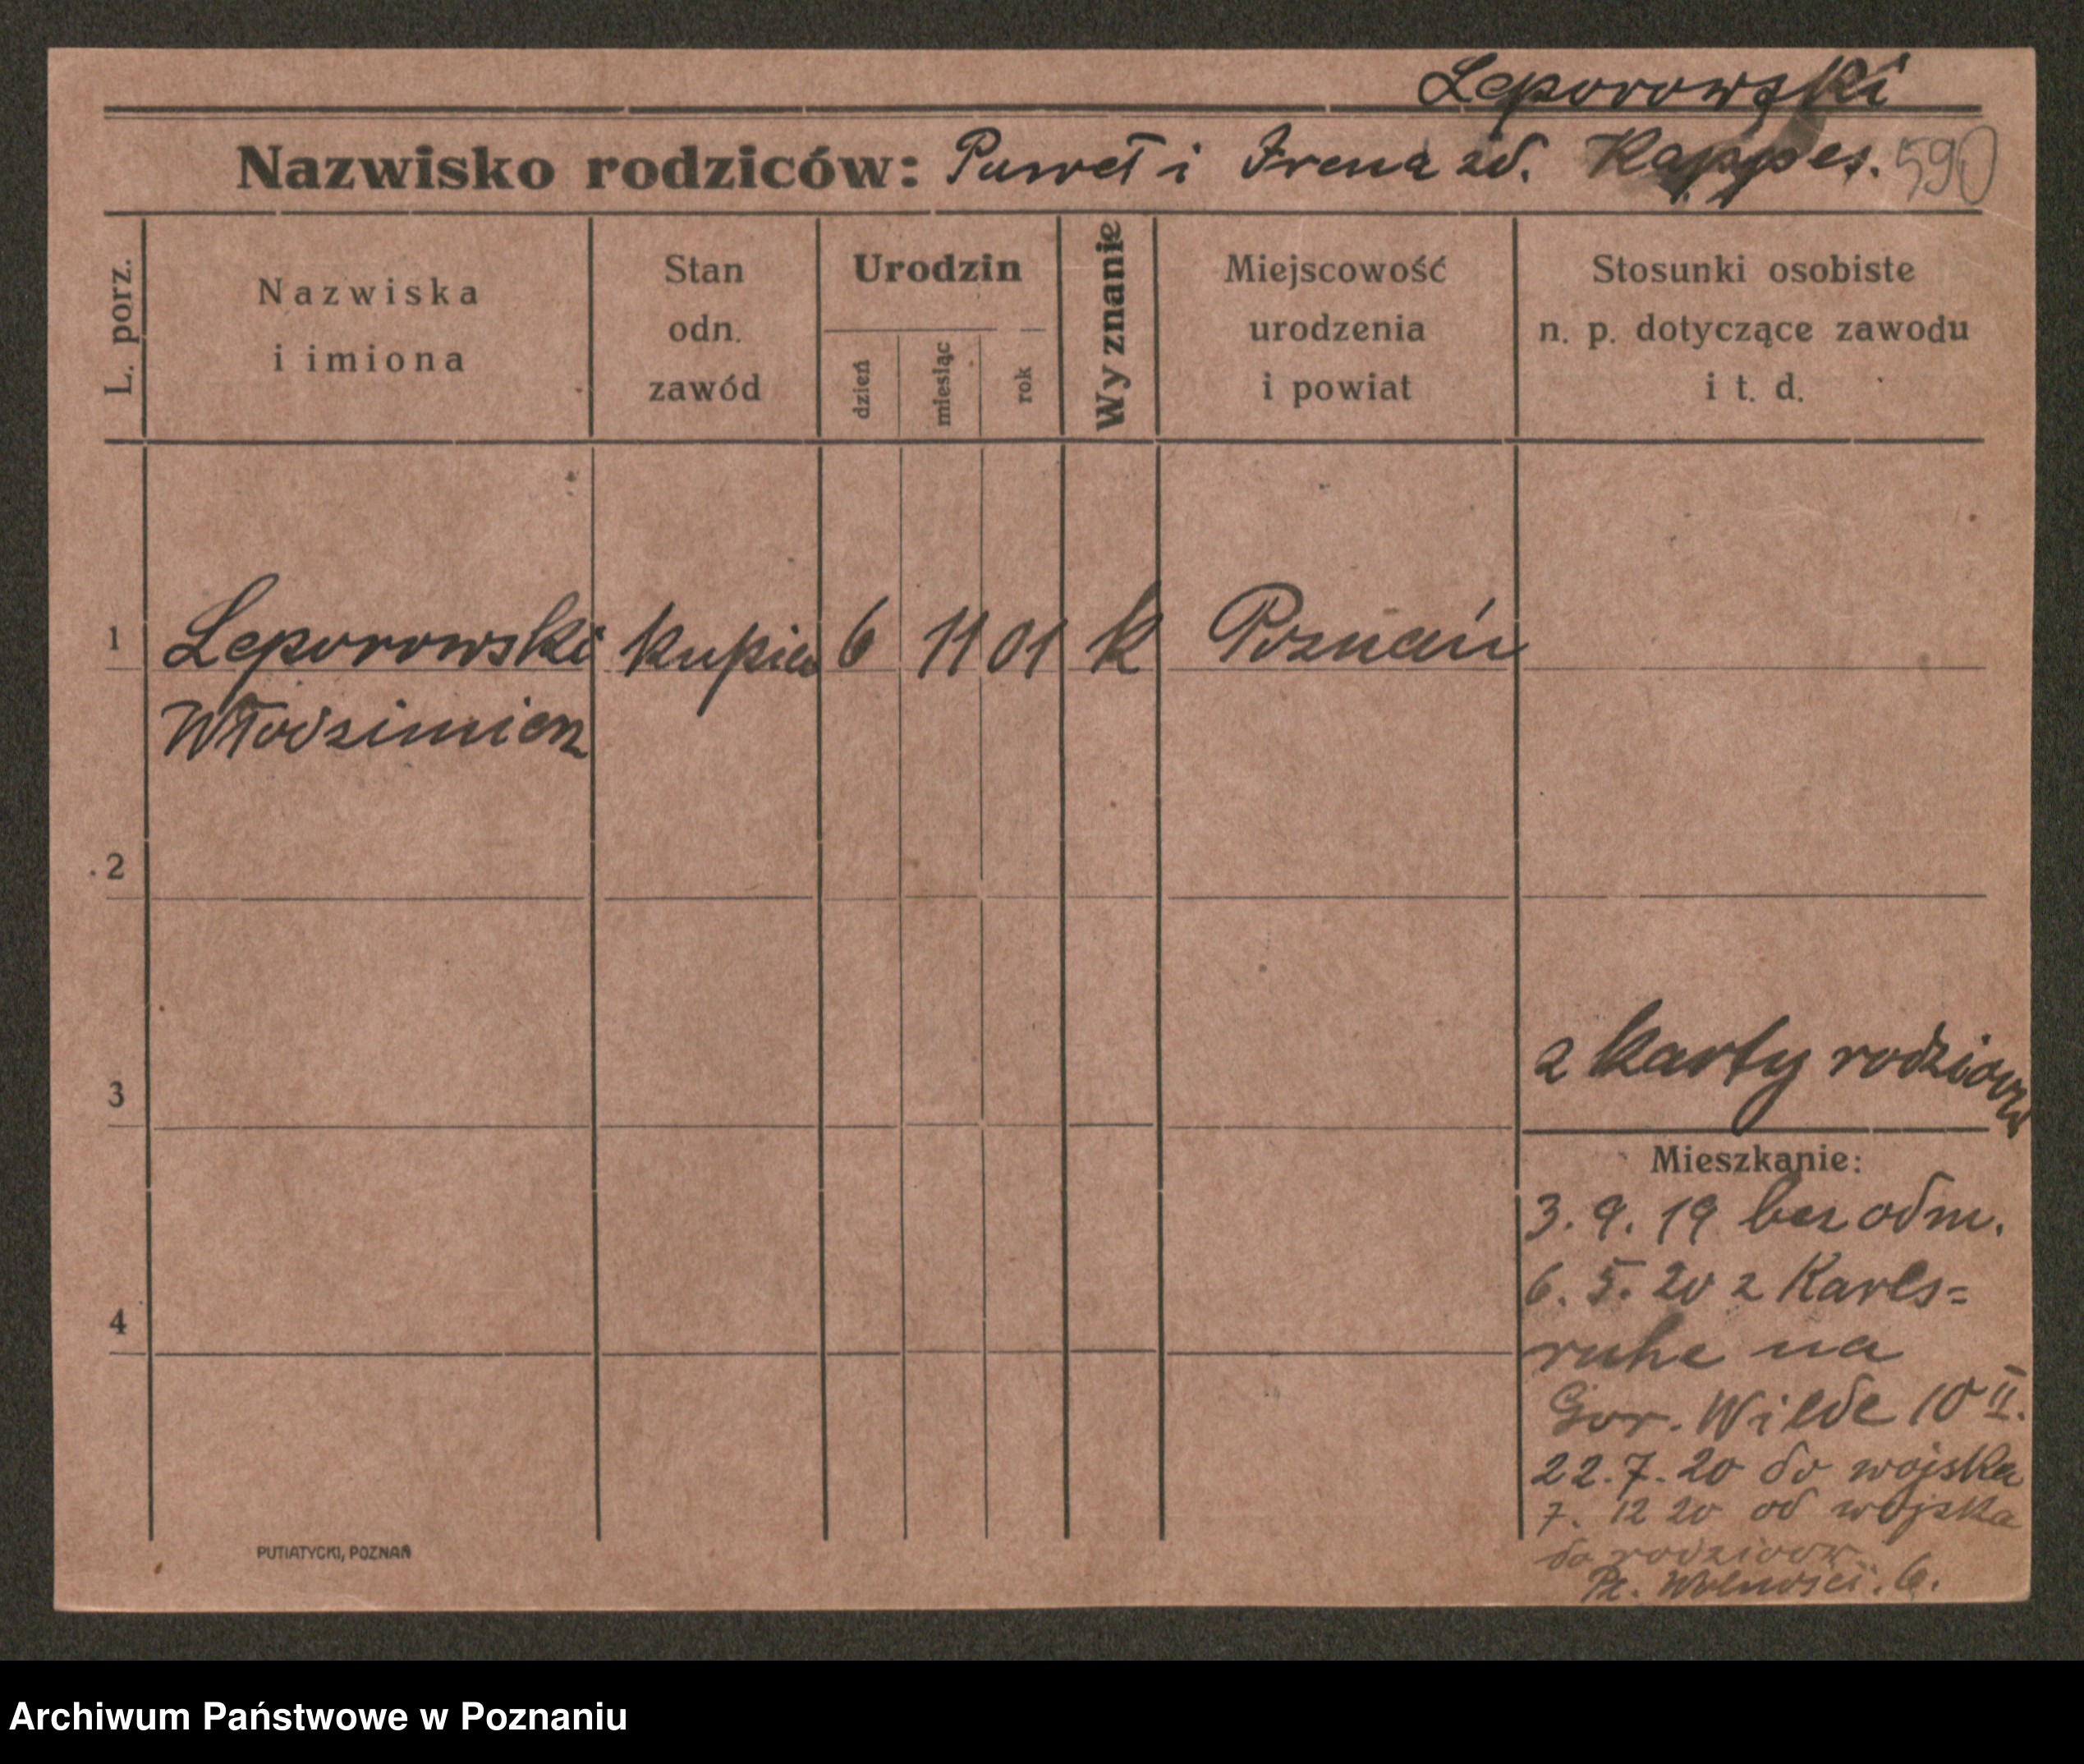 Leporowski
Nazwisko rodziców: Paweł i Irena zd. Kappes. 590
L. porz.
Nazwiska
i imiona
Stan
odn.
zawód
Urodzin
dzień
miesiąc
rok
Wyznanie
Miejscowość
urodzenia
i powiat
Stosunki osobiste
n. p. dotyczące zawodu
i t. d.
1 Leporowski kupiec 6 11 01 k Poznań
Włodzimierz
2
z karty rodziców
3
Mieszkanie:
3. 9. 19 bez odm.
6. 5. 20 z Karls=
4
ruhe na
Gór. Wilde 10 II.
22. 7. 20 do wojska
7. 12 20 od wojska
do rodziców
Pl. Wolności. 6.
PUTIATYCKI, POZNAŃ
Archiwum Państwowe w Poznaniu